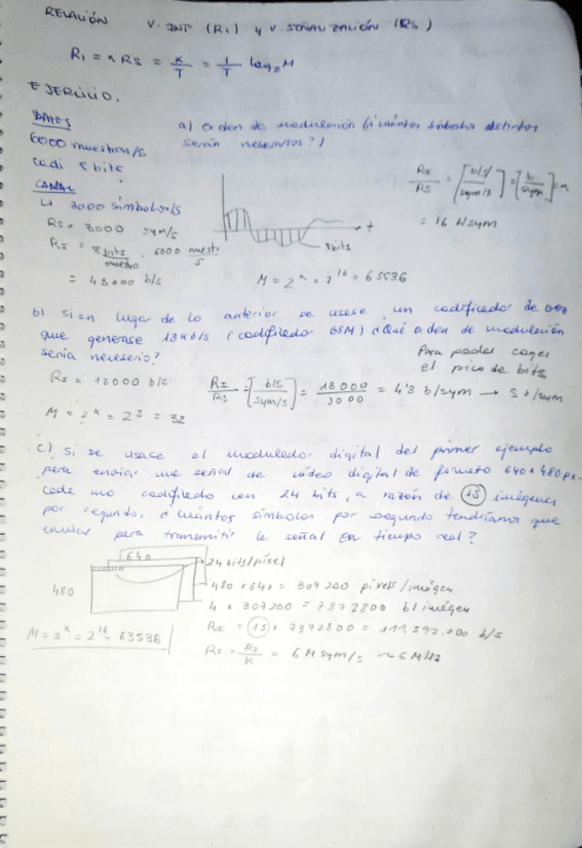 RELACIÓN V. INF (Ri) y V SEÑALIZACIÓN (Rs)
Ri = n Rs = K/T = 1/T log2 M
EJERCICIO.
DATOS
6000 muestras/s
cada 8 bits
CANAL
↳ 3000 símbolos/s
Rs = 3000 sym/s
Ri = 8 bits/muestra · 6000 muestr/s
= 48000 b/s
a) orden de modulación (¿cuántos símbolos distintos
serán necesarios?)
8 bits
t
Ri/Rs = [b/s / sym/s] = [b/sym] = n
= 16 b/sym
M = 2^n = 2^16 = 65536
b) si en lugar de lo anterior se usase un codificador de voz
que generase 13kb/s (codificador GSM) ¿Qué orden de modulación
sería necesario?
Para poder coger
el pico de bits
Ri = 13000 b/s
Ri/Rs = [b/s / sym/s] = 13000/3000 = 4'3 b/sym → 5 b/sym
M = 2^n = 2^5 = 32
c) si se usase el modulador digital del primer ejemplo
para enviar una señal de vídeo digital de formato 640x480 px.
cada uno codificado con 24 bits, a razón de 15 imágenes
por segundo, ¿cuántos símbolos por segundo tendríamos que
enviar para transmitir la señal en tiempo real?
640
480
24 bits/píxel
480 · 640 = 307200 píxels/imagen
4 · 307200 = 7372800 b/imagen
Ri = 15 · 7372800 = 111,592.000 b/s
M = 2^n = 2^16 = 63536
Rs = Ri/K = 6 M sym/s ~ 6 MHz